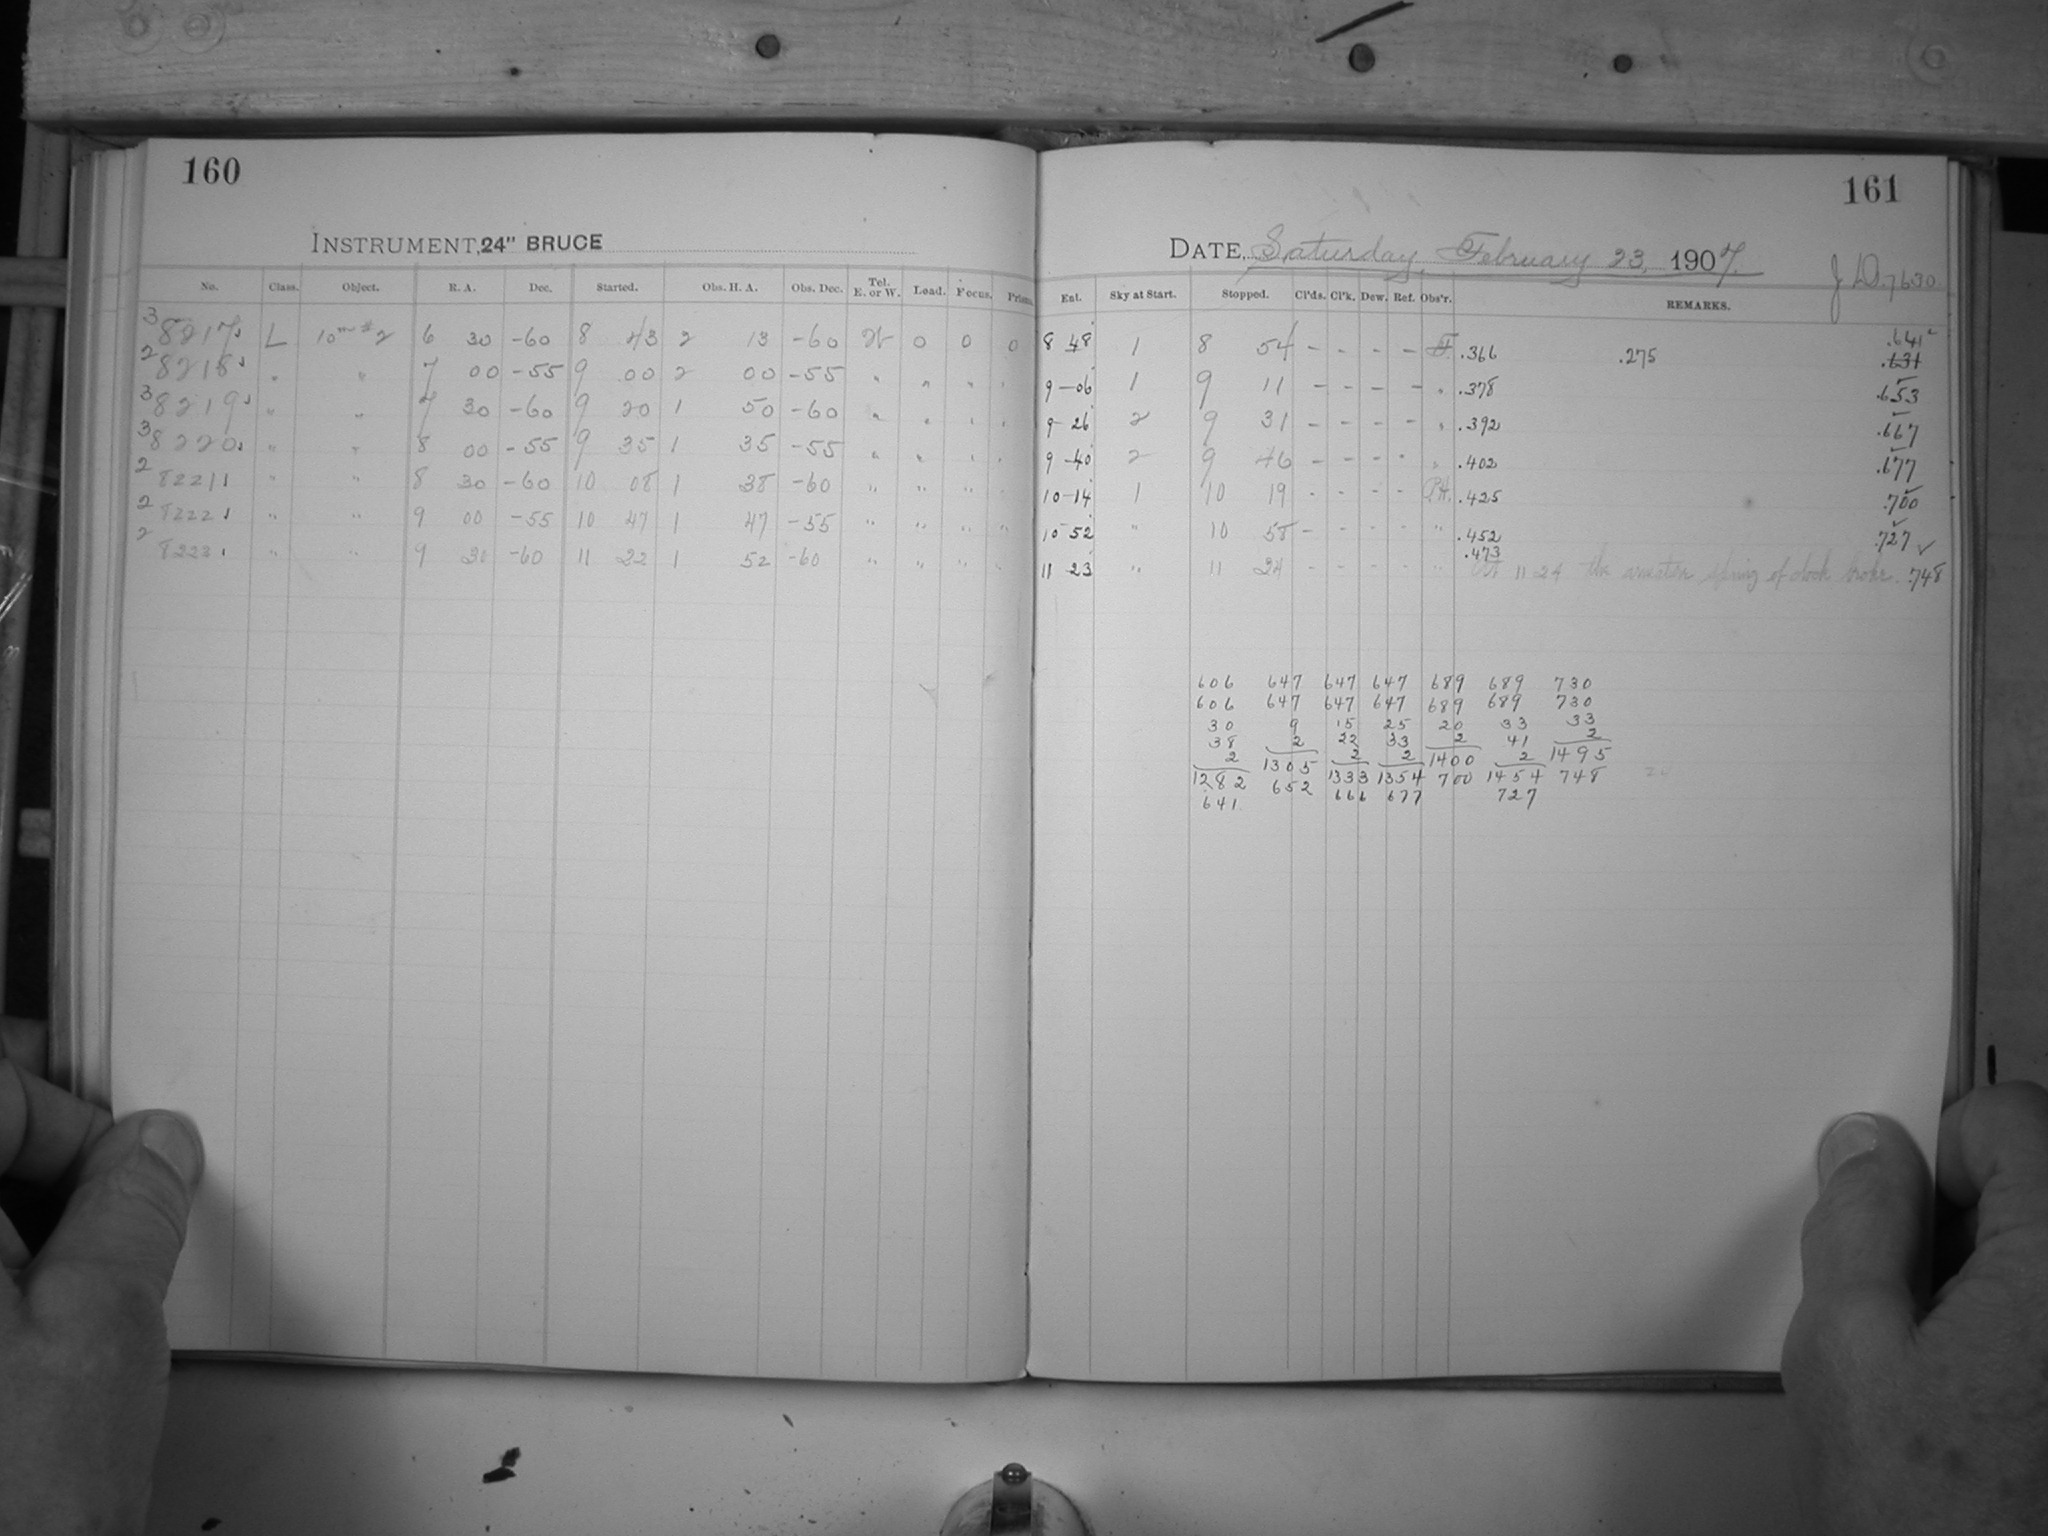 160
INSTRUMENT, 24" BRUCE
No. Class. Object. R. A. Dec. Started. Obs. H. A. Obs. Dec. Tel. E. or W. Load. Focus. Prism.
3 8217 L 10m #2 6 30 -60 8 43 2 13 -60 W 0 0 0
2 8218 " " 7 00 -55 9 00 2 00 -55 " " " "
3 8219 " " 7 30 -60 9 20 1 50 -60 " " " "
3 8220 " " 8 00 -55 9 35 1 35 -55 " " " "
2 8221 " " 8 30 -60 10 08 1 38 -60 " " " "
2 8222 " " 9 00 -55 10 47 1 47 -55 " " " "
2 8223 " " 9 30 -60 11 22 1 52 -60 " " " "
161
DATE, Saturday, February 23, 1907.
J.D. 7630
Ent. Sky at Start. Stopped. Cl'ds. Cl'k. Dew. Ref. Obs'r. REMARKS.
8 48 1 8 54 - - - - .366 .275 .641 .631
9-06 1 9 11 - - - - " .378 .653
9-26 2 9 31 - - - - " .392 .667
9-40 2 9 46 - - - - " .402 .677
10-14 1 10 19 - - - - P.H. .425 .700
10 52 " 10 58 - - - - " .452 .727 ✓
11 23 " 11 24 - - - - " .473 At 11 24 the spring of clock broke. .748
606 647 647 647 689 689 730
606 647 647 647 689 689 730
30 9 15 25 20 33 33
38 2 22 33 2 41 2
2 1305 2 2 1400 2 1495
1282 652 1333 1354 700 1454 748
641 666 677 727